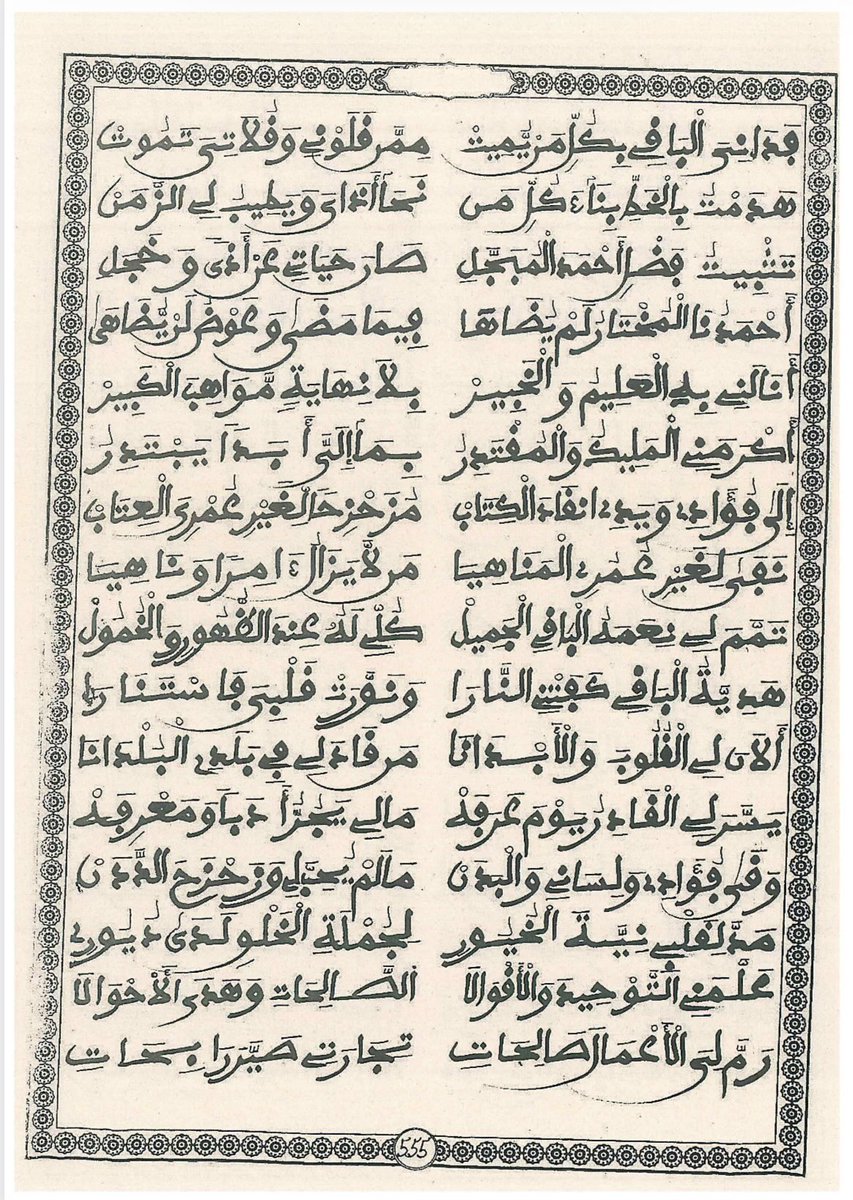 فَدَانِىَ الْبَافِے بِكُلِّ مَنْ يُّمِيتْ مِمَّن فَلَوْنِے وَفَلاَتِىَ تَمُوتْ
هَدَمْتَ بِالْخَطِّ بِنَاءَ كُلِّ مَن نَحَا أَذَاىَ وَيَطِيبُ لِے الزَّمَنْ
تَثْبِيتُ فِضْلِ أَحْمَدَ الْمُبَجَّلِ صَارَ حَيَاتِے عَنْ أَذًى وَخَجَلِ
أَحْمَدُنَا الْمُخْتَارُ لَمْ يُضَاهَا فِيمَا مَضَى وَعَوْضُ لَنْ يُّضَاهَى
أَنَالَنِے بِهِ الْعَلِيمُ وَالْخَبِيرْ بِلاَ نِهَايَةٍ مَّوَاهِبَ الْكَبِيرْ
أَكْرَمَنِے الْمَلِيكُ وَالْمُفْتَدِرُ بِمَا إِلَىَّ أَبَدًا يَبْتَدِرُ
إِلَى فُؤَادِے وَيَدِے انفَادَ الْكِتَابْ مُزَحْزِحًا لِّغَيْرِ عُمْرِىَ الْعِتَابْ
نَفَى لِغَيْرِ عُمُرِے الْمَنَاهِيَا مَن لاَّ يَزَالُ ءَامِرًا وَنَاهِيَا
تَمَّمَ لِے نِعَمَهُ الْبَافِے الْجَمِيلْ كُلِّے لَهُ عِندَ الظُّهُورِ وَالْخُمُولْ
هَدِيَّةُ الْبَافِے كَفَتْنِے النَّارَا وَنَوَّرَتْ فَلْبِىَ فَاسْتَنَارَا
أَلاَنَ لِے الْفُلُوبَ وَالأَبْدَانَا مَن فَادَ لِے فِے بَلَدِے الْبُلْدَانَا
يَسَّرَ لِے الْفَادِرُ يَوْمَ عَرَفَهْ مَا لِے يَجُرُّ أَدَبًا وَمَعْرِفَهْ
وَفَى فُؤَادِے وَلِسَانِے وَالْبَدَنْ مَا لَمْ يُحَبَّ لِے وَزَحْزَحَ الدَّدَنْ
مَدَّ لِفَلْبِے نِيَّةَ الْخُيُورِ لِجُمْلَةِ الْخَلْوِ لَدَى دُيُورِے
عَلَّمَنِے التَّوْحِيدَ وَالأَفْوَالاَ الصَّالِحَاتِ وَهَدَى الأَحْوَالاَ
رَمَّ لِىَ الأَعْمَالَ صَالِحَاتِ تِجَارَتِے صَيَّرَ رَابِحَاتِ
555